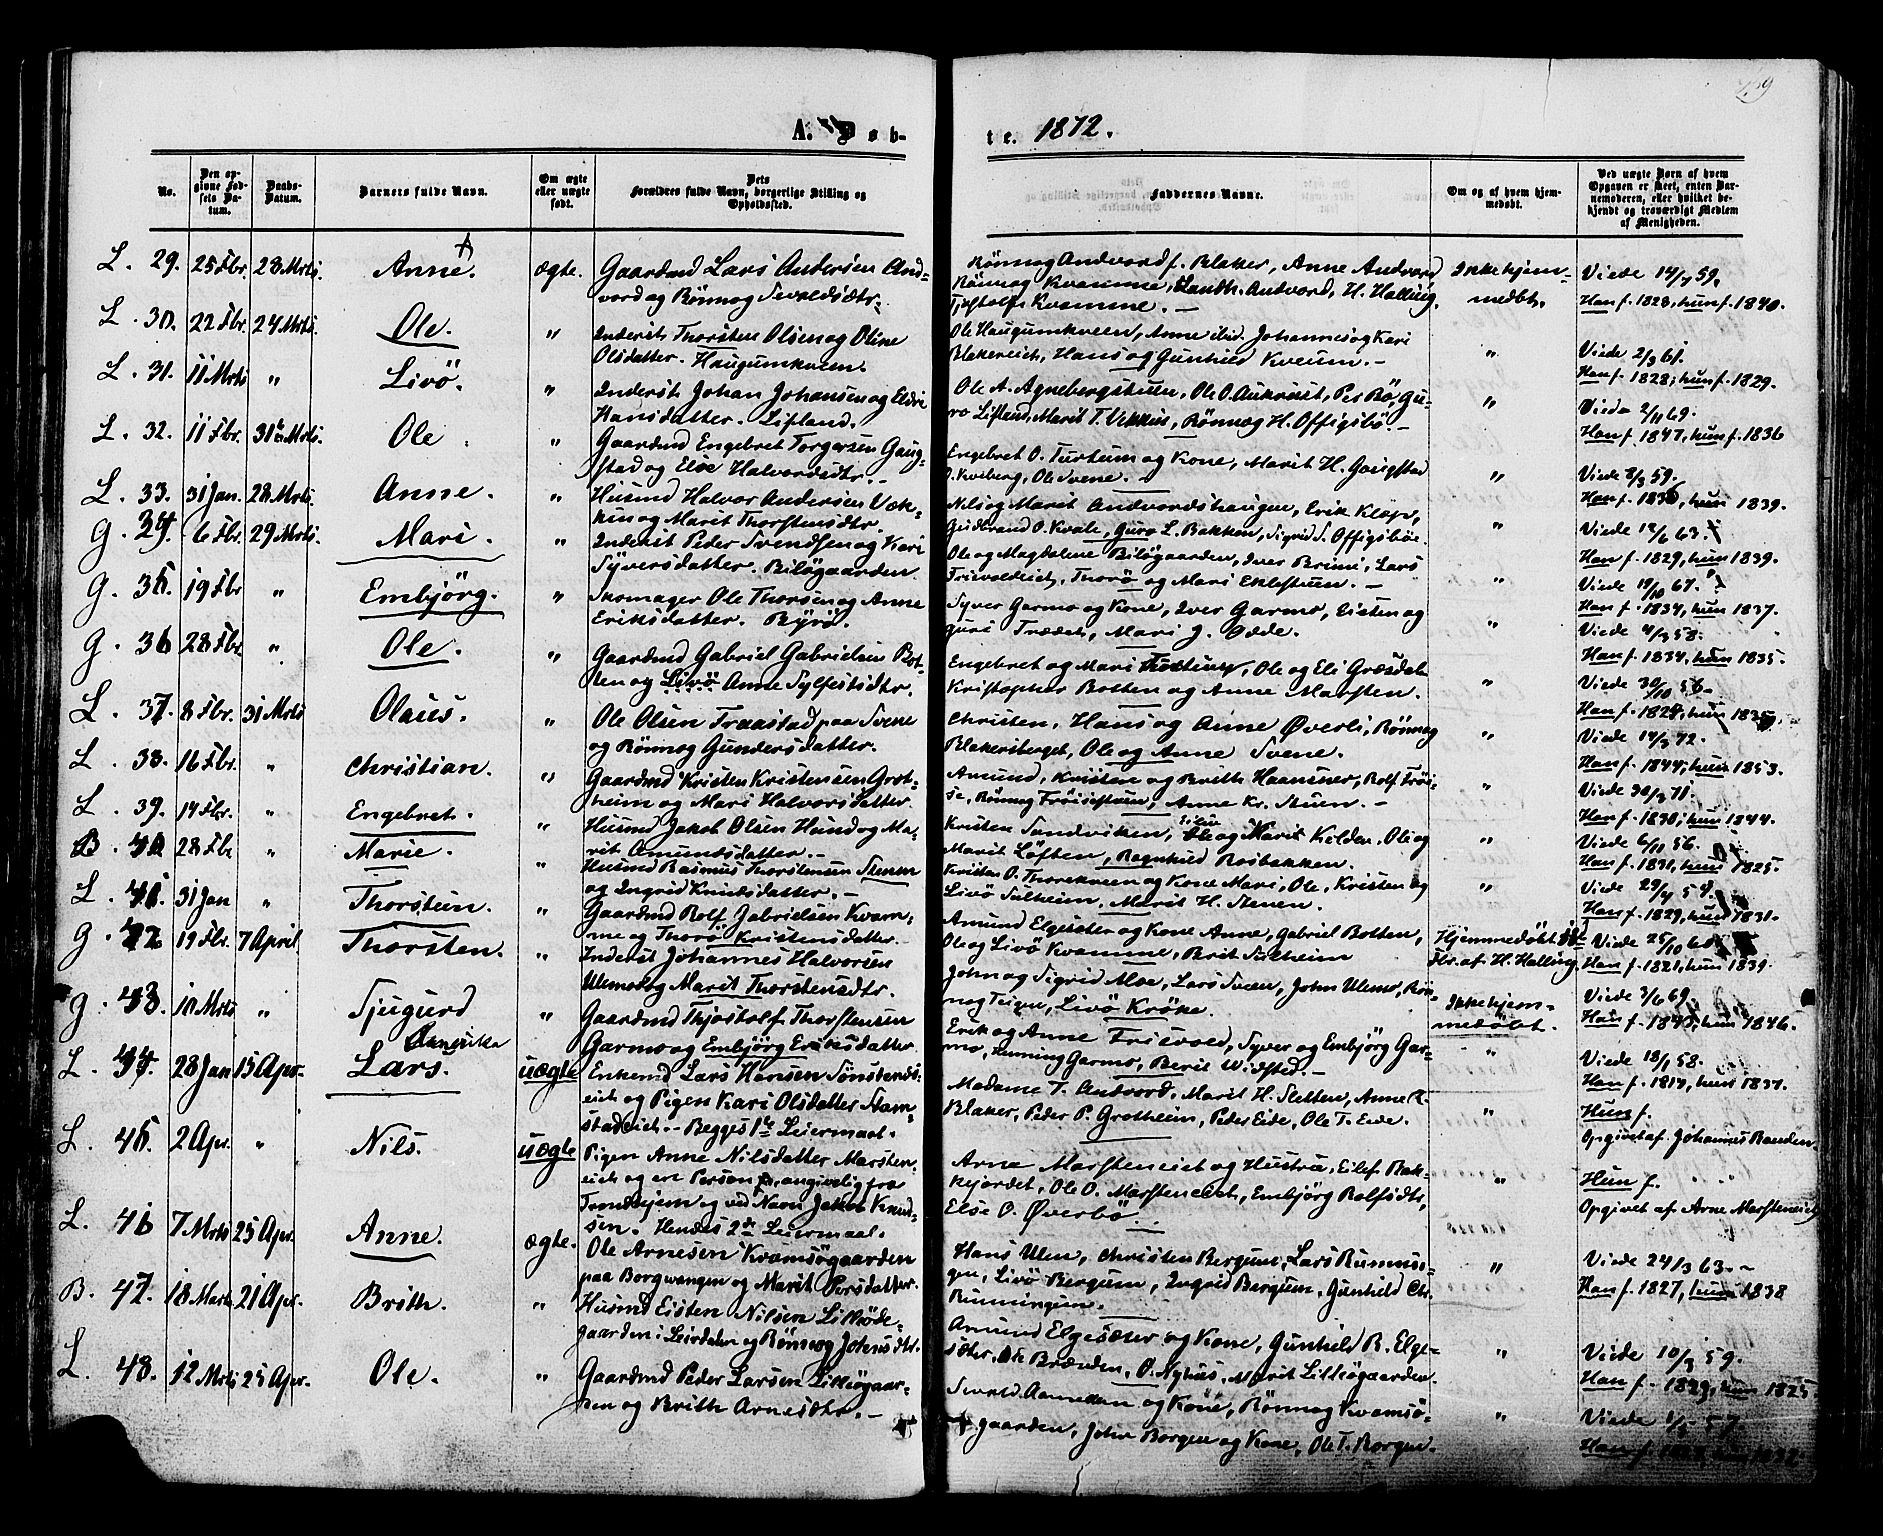 A. Døb-
te. 1872.
No.
Den opgivne Fødsels Datum.
Daabs-Datum.
Barnets fulde Navn.
Om ægte eller uægte født.
Dets Forældres fulde Navn, borgerlige Stilling og Opholdssted.
Faddernes Navne.
Om og af hvem hjemmedøbt.
Ved uægte Børn af hvem Opgaven er skeet, enten Barnemoderen, eller hvilket bekjendt og troværdigt Medlem af Menigheden.
L. 29. 25 Fbr. 28 Mrts. Anne. ægte. Gaardmd Lars Andersen And-
vord og Rönnog Sivaldsdtr.
Rönnog Andvord f. Blaker, Anne Andvord
Rönnog Kvamme, Andvord, H. Halling,
Kvamme. —
Ikke hjem-
medbt.
Viede 14/7 59.
Han f. 1828, hun f. 1840.
L. 30. 22 Fbr. 24 Mrts. Ole. " Inderst Thorsten Olsen og Oline
Olsdatter. Haugumkveen.
Ole Haugumkveen, Anne ibid. Johannes og Kari
Blakereich, Hans og Gunhild Kveum. —
"
Viede 2/3 61.
Han f. 1828; hun f. 1829.
L. 31. 11 Mrts " Livö. " Inderst Johan Johansen og Eldri
Hansdatter. Lifland.
Ole A. Agnebergstuen, Ole O. Aukrust, Per Bö, Gu-
ro Lifland, Marit T. Vekkin, Rönnog H. Offigsbö. —
"
Viede 2/11 69.
Han f. 1847, hun f. 1836
L. 32. 11 Fbr. 31 Mrts. Ole. " Gaardmd Engebret Torgersen Gaug-
stad og Else Halvordsdtr. —
Engebret O. Turtum og Kone, Marit H. Gaugstad
O. Kviberg, Ole Svene. —
"
Viede 8/3 59.
Han f. 1836, hun 1839.
L. 33. 31 Jan. 28 Mrts. Anne. " Husmd Halvor Andersen Vek-
kin og Marit Thorstensdtr.
Nils og Marit Andvordshaugen, Erik Klep,
Gudbrand O. Kvale, Guro L. Bakken, Sigrid S. Offigsböe.
"
Viede 18/6 63.
Han f. 1829, hun 1839.
G. 34. 6 Fbr. 29 Mrts. Mari. " Inderst Peder Svendsen og Kari
Syversdatter. Bilögaarden
Ole og Magdalene Bilögaarden, Iver Brimi, Lars
Frisvoldeich, Thorö og Mari Eklestuen. —
"
Viede 19/10 67.
Han f. 1834, hun 1837.
G. 35. 19 Fbr " Embjörg. " Skomager Ole Thorsen og Anne
Eriksdatter. Byrö.
Syver Garmo og Kone, Iver Garmo, Eisten og
Guri Trædet, Mari J. Odde.
"
Viede 4/3 58.
Han f. 1834, hun 1835.
G. 36 28 Fbr. " Ole. " Gaardmd Gabriel Gabrielsen Bot-
ten og Livö Anne Sylfestsdtr.
Engebret og Mari, Ole og Eli Græsdalen
Kristopher Botten og Anne Marsten.
"
Viede 30/10 56.
Han f. 1828, hun 1835
L. 37. 8 Fbr. 31 Mrts Olaus. " Ole Olsen Traastad paa Svene
og Rönnog Gundersdatter.
Christen, Hans og Anne Øverli, Rönnog
Blakersberget, Ole og Anne Svene.
"
Viede 14/3 72.
Han f. 1844, hun 1853.
L. 38. 16 Fbr. " Christian. " Gaardmd Kristen Kristensen Grot-
heim og Mari Halvorsdatter.
Amund, Kristen og Brith Haansner, Rolf Fröi-
se, Rönnog Fröisestuen, Anne Kr. Stuen. —
"
Viede 30/3 71.
Han f. 1830, hun 1844.
L. 39. 14 Fbr. " Engebret. " Husmd Jakob Olsen Hund og Ma-
rit Amundsdatter. —
Kristen Sandviken, Ole og Marit Kilden. Ole og
Marit Löften, Ragnhild Rosbakken.
"
Viede 6/11 56.
Han f. 1831, hun 1825.
B. 40 28 Fbr " Marie. " Husmd Rasmus Thorstensen Stenen
og Ingrid Knudsdatter. —
Kristen O. Thorekveen og Kone Mari, Ole, Kristen og
Livö Sulheim, Marit H. Stenen.
"
Viede 29/4 54.
Han f. 1829, hun 1831.
L. 41. 31 Jan " Thorstein. " Gaardmd Rolf Jabrielsen Kvam-
me og Thorö Kristensdatter.
Amund Elgesæter og Kone Anne, Gabriel Botten,
Ole og Livö Kvamme, Brit Sulheim
Hjemmedöbt
Fbr. af H. Halling.
Viede 25/10 60.
Han f. 1821, hun 1839.
G. 42 19 Fbr. 7 April Thorsten. " Inderst Johannes Halvorsen
Ulemo og Marit Thorstensdtr.
John og Sigrid Moe, Lars Tuen, John Ulemo, Rön-
nog Teigen, Livö Kröke.
Ikke hjem-
medöbt.
Viede 3/6 69.
Han f. 1843, hun 1846.
G. 43. 10 Mrts " Sjugurd " Gaardmd Thjostolf Thorstensen
Garmo og Embjörg Eriksdatter
Erik og Anne Frisvold, Syver og Embjörg Gar-
mo, Henning Garmo, Berit Widsted. —
"
Viede 18/1 58.
Han f. 1814, hun 1831.
L. 44. 28 Jan 15 Apr. Lars. uægte Enkemd Lars Hansen Sönstend-
eich og Pigen Kari Olsdatter Stam-
stadeich. — Begges 1te Leiermaal.
Madame T. Andvord, Marit H. Sletten, Anne R.
Blaker, Peder P. Grotheim, Peder Eide, Ole T. Eide.
"
Hun f.
Opgivet af Johannes Rånden
L. 45. 2 Apr. " Nils. uægte Pigen Anne Nilsdatter Marsten-
eich og en Person, angivelig fra
Trondhjem og ved Navn Jakob Knud-
sen. Hendes 2det Leiermaal.
Arne Marsteneiet og Hustru, Eilef Bak-
kejordet, Ole O. Marsteneich, Embjörg Rolfsdtr,
Else O. Øverbö.
"
Hun f.
Opgivet af Arne Marsteneich
L. 46 7 Mrts 25 Apr. Anne. ægte. Ole Arnesen Kvamsögaarden
paa Borgwangen og Marit Persdatter.
Hans Ulen, Christen Bergum, Lars Runnin-
gen, Livö Bergum, Ingrid Bergum, Gunhild Ch.
Runningum.
"
Viede 24/3 63.
Han f. 1827, hun 1838
B. 47. 18 Marts 21 Apr. Brith. " Husmd Eisten Nilsen Lillöde-
gaarden i Leirdalen og Rönnog Johansdtr.
Amund Elgesæter og Kone, Gunhild R. Elge-
sæter, Ole Brænden, O. Nyhus, Marit Lillögaarden.
"
Viede 10/3 59.
Han f. 1829, hun 1825
L. 48. 12 Mrts 25 Apr. Ole. " Gaardmd Peder Larsen Lillögaar-
den og Brith Arnesdtr. —
og Kone, Rönnog Kvamsö-
gaarden, John Borgen og Kone, Ole T. Borgen.
"
Viede 1/5 57.
Han f.